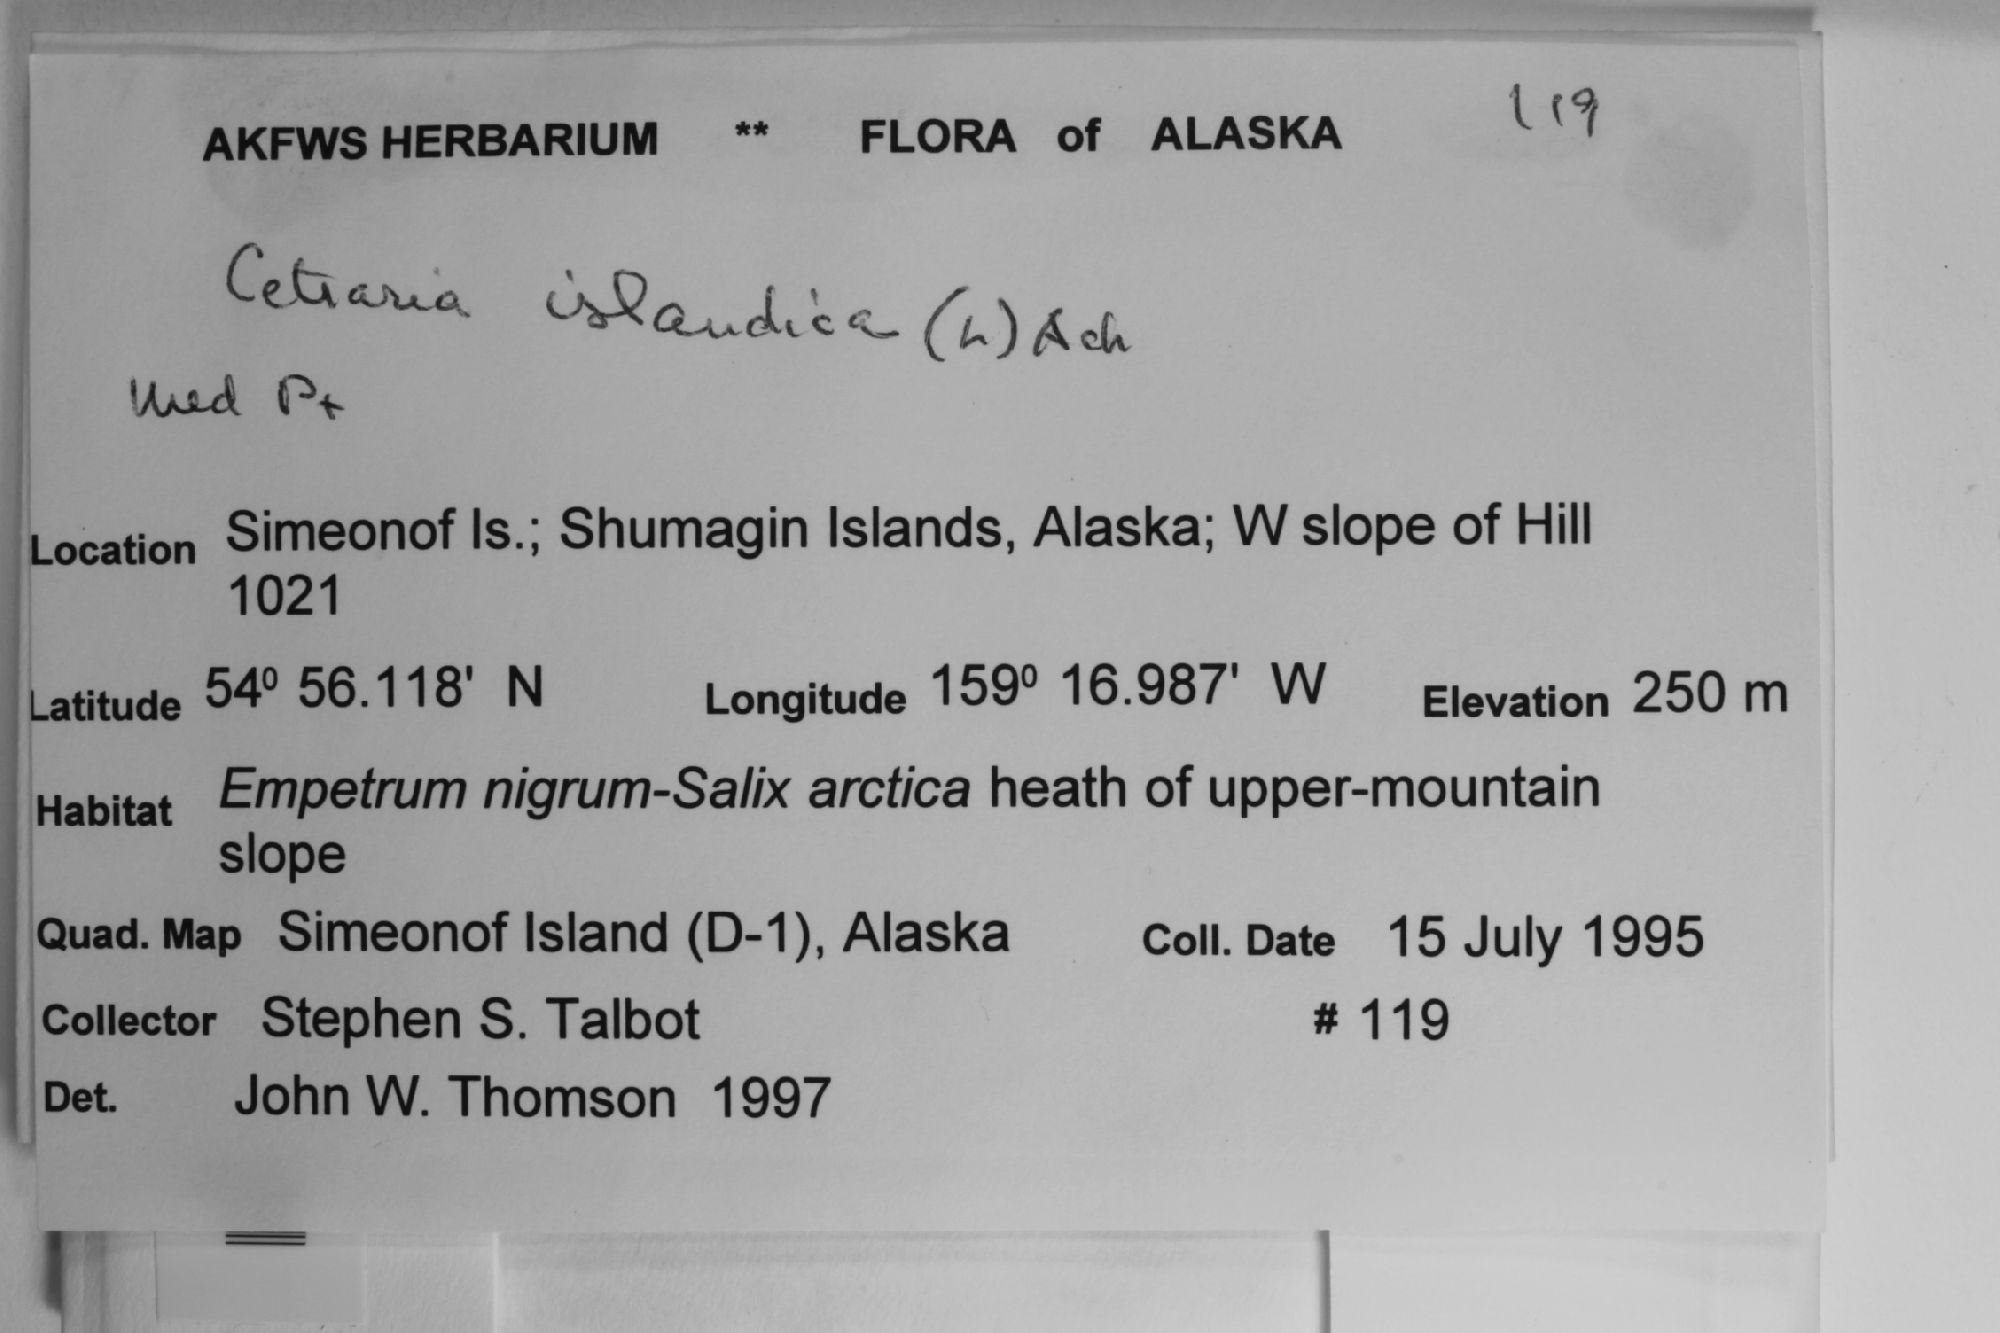 AKFWS HERBARIUM ** FLORA of ALASKA 119
Cetraria islandica (L) Ach
Med P+
Location Simeonof Is.; Shumagin Islands, Alaska; W slope of Hill
1021
Latitude 54⁰ 56.118' N Longitude 159⁰ 16.987' W Elevation 250 m
Habitat Empetrum nigrum-Salix arctica heath of upper-mountain
slope
Quad. Map Simeonof Island (D-1), Alaska Coll. Date 15 July 1995
Collector Stephen S. Talbot # 119
Det. John W. Thomson 1997